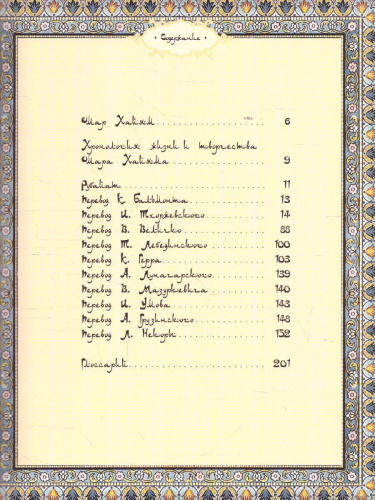 Содержание
Омар Хайям 6
Хронология жизни и творчества
Омара Хайяма 9
Рубайат 11
Перевод К. Бальмонта 13
Перевод И. Тхоржевского 14
Перевод В. Величко 88
Перевод Т. Лебединского 100
Перевод К. Герра 103
Перевод А. Луначарского 139
Перевод В. Мазуркевича 140
Перевод И. Умова 143
Перевод А. Грузинского 148
Перевод Л. Некоры 152
Глоссарий 201